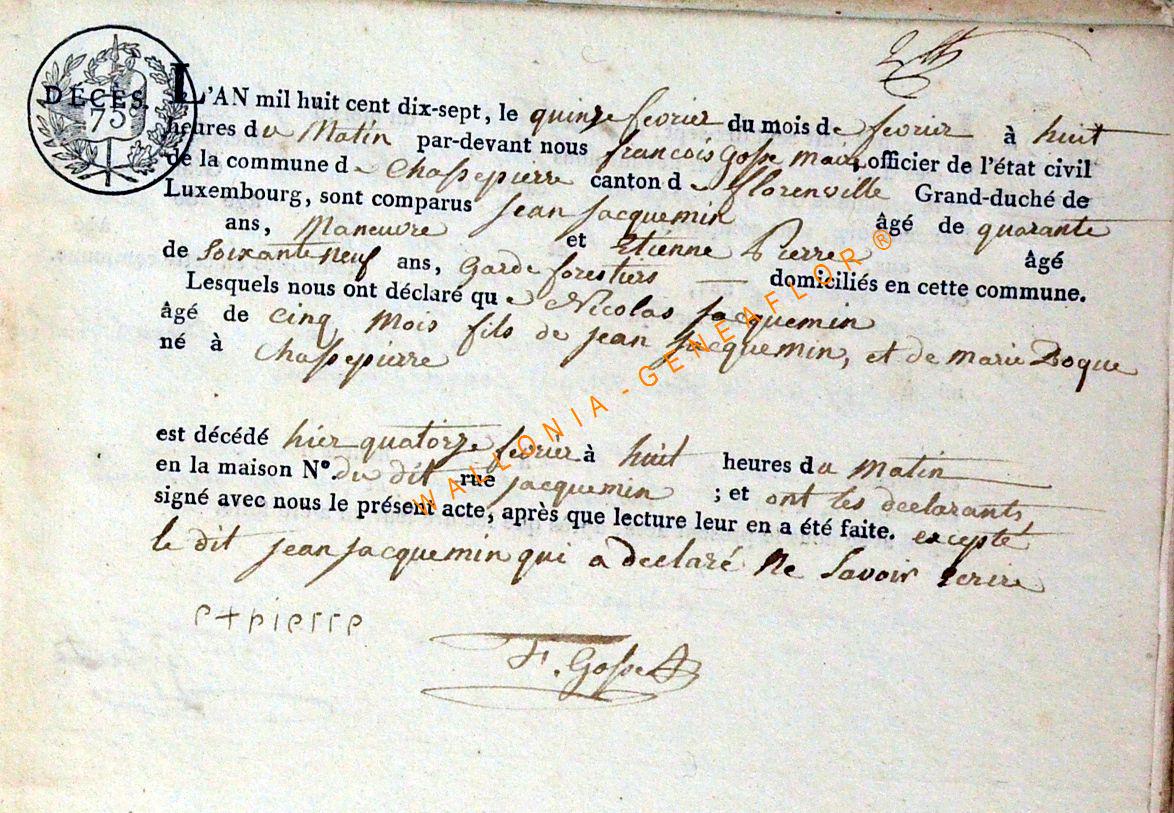 DÉCÈS.
75
L'AN mil huit cent dix-sept, le quinze fevrier du mois de fevrier à huit
heures du Matin par-devant nous francois Gosse Maire, officier de l'état civil
de la commune de Chassepierre canton de florenville Grand-duché de
Luxembourg, sont comparus Jean Jacquemin âgé de quarante
ans, Maneuvre et Etiénne Pierre âgé
de Soixante neuf ans, Garde forestiers domiciliés en cette commune.
Lesquels nous ont déclaré que Nicolas Jacquemin
âgé de cinq mois fils de jean Jacquemin, et de marie Boque
né à Chassepierre
est décédé hier quatorze fevrier à huit heures du Matin
en la maison N° du dit rue jacquemin ; et ont les declarants
signé avec nous le présent acte, après que lecture leur en a été faite. excepté
le dit jean jacquemin qui a declaré Ne Savoir ecrire
e+pierre
F. Gosse
WALLONIA - GENEAFLOR ®